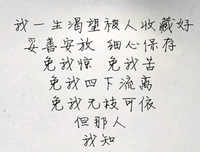 我一生渴望被人收藏好
妥善安放 细心保存
免我惊 免我苦
免我四下流离
免我无枝可依
但那人
我知